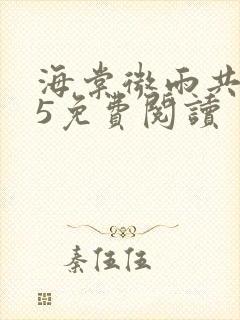 海棠微雨共
5免費閱讀
秦伍伍